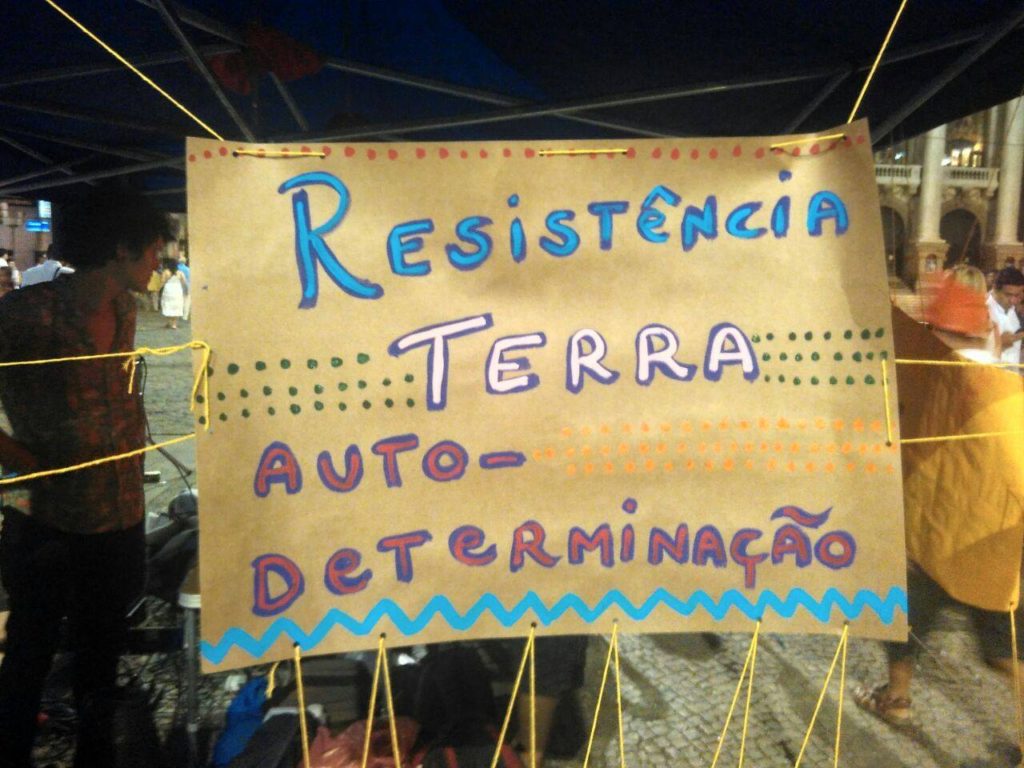 RESISTÊNCIA
TERRA
AUTO-
DETERMINAÇÃO